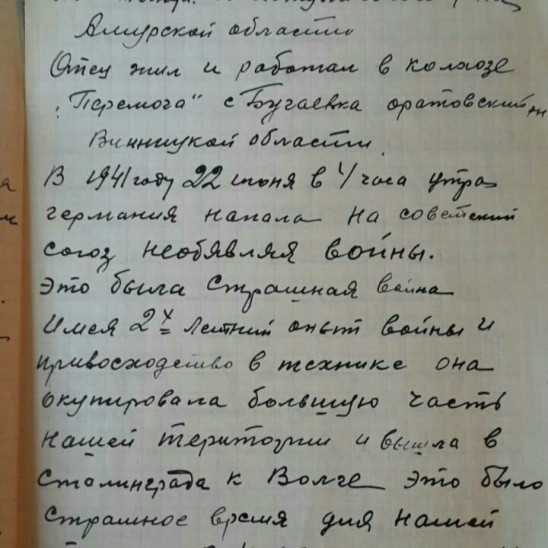 Амурской области
Отец жил и работал в колхозе
"Перемога" с Бугаевка оратовский рн
Винницкой области.
В 1941 году 22 июня в 4 часа утра
германия напала на советский
союз необявляя войны.
Это была Страшная война
Имея 2х летний опыт войны и
привосходство в технике она
окупировала большую часть
нашей територии и вышла в
Сталинграда к Волге это было
Страшное время для нашей